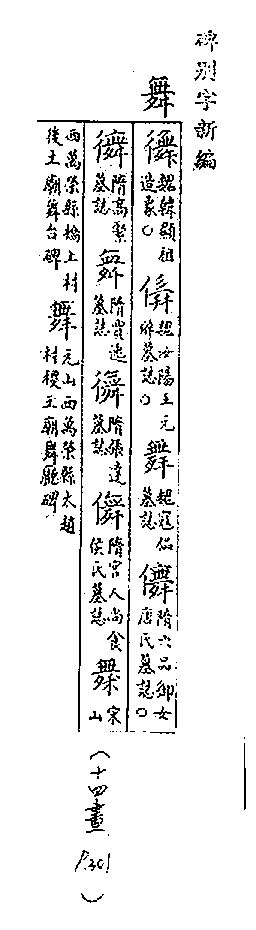 碑別字新編
舞
儛魏韓顯祖造象〇儛魏汝陽王元䏁墓誌〇舞魏寇侃墓誌儛隋六品御女唐氏墓誌〇
儛隋高緊墓誌舞隋賈逸墓誌儛隋張達墓誌儛隋宮人尚食侯氏墓誌舞宋山
西萬榮縣橋上村後土廟舞台碑舞元山西萬榮縣太趙村稷王廟舞廳碑
(十四畫 P.301)